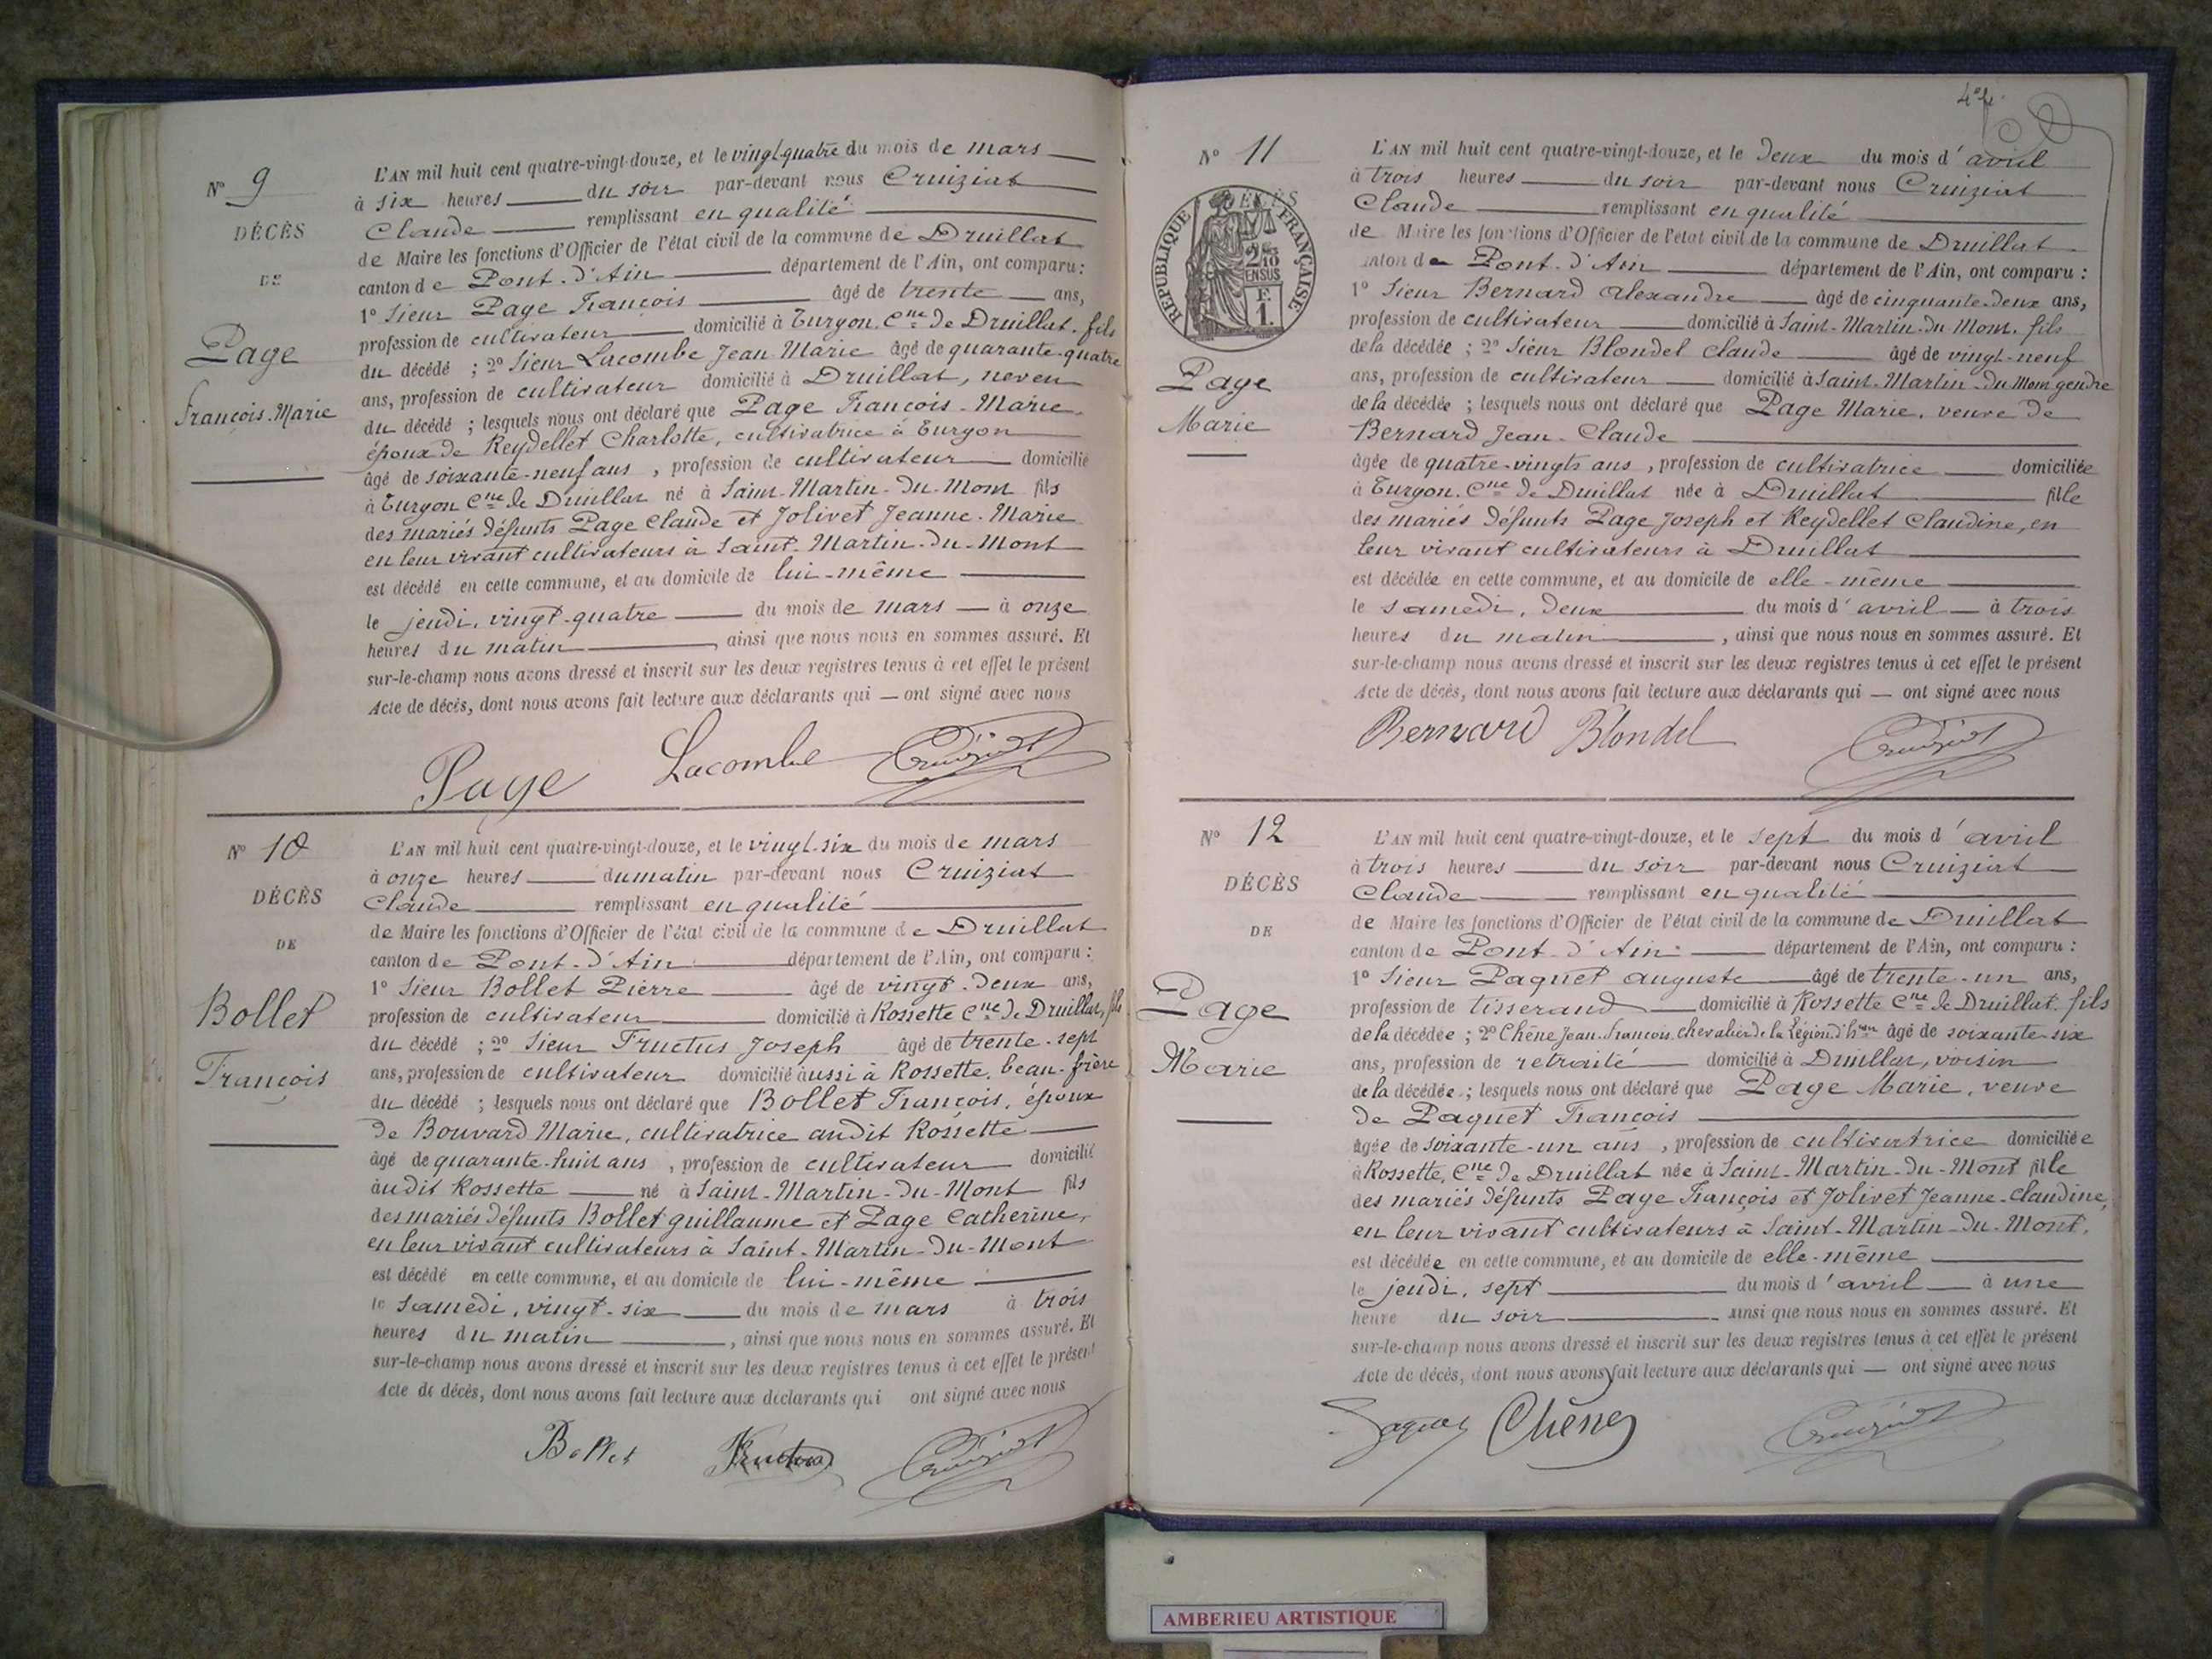 N° 9
DÉCÈS
DE
Page
François-Marie
L'AN mil huit cent quatre-vingt-douze, et le vingt-quatre du mois de mars
à six heures du soir par-devant nous Cruiziat
Claude remplissant en qualité
de Maire les fonctions d'Officier de l'état civil de la commune de Druillat
canton de Pont-d'Ain département de l'Ain, ont comparu :
1° Sieur Page François âgé de trente ans,
profession de cultivateur domicilié à Turgon Cne de Druillat, fils
du décédé ; 2° Sieur Lacombe Jean Marie âgé de quarante-quatre
ans, profession de cultivateur domicilié à Druillat, neveu
du décédé ; lesquels nous ont déclaré que Page François-Marie,
époux de Reydellet Charlotte, cultivatrice à Turgon
âgé de soixante-neuf ans, profession de cultivateur domicilié
à Turgon Cne de Druillat né à Saint-Martin-du-Mont fils
des mariés défunts Page Claude et Jolivet Jeanne-Marie
en leur vivant cultivateurs à Saint-Martin-du-Mont
est décédé en cette commune, et au domicile de lui-même
le jeudi, vingt-quatre du mois de mars à onze
heures du matin, ainsi que nous nous en sommes assuré. Et
sur-le-champ nous avons dressé et inscrit sur les deux registres tenus à cet effet le présent
Acte de décès, dont nous avons fait lecture aux déclarants qui ont signé avec nous
Page Lacombe Cruiziat
N° 10
DÉCÈS
DE
Bollet
François
L'AN mil huit cent quatre-vingt-douze, et le vingt-six du mois de mars
à onze heures du matin par-devant nous Cruiziat
Claude remplissant en qualité
de Maire les fonctions d'Officier de l'état civil de la commune de Druillat
canton de Pont-d'Ain département de l'Ain, ont comparu :
1° Sieur Bollet Pierre âgé de vingt-deux ans,
profession de cultivateur domicilié à Rossette Cne de Druillat, fils
du décédé ; 2° Sieur Fructus Joseph âgé de trente-sept
ans, profession de cultivateur domicilié aussi à Rossette, beau-frère
du décédé ; lesquels nous ont déclaré que Bollet François, époux
de Bouvard Marie, cultivatrice audit Rossette
âgé de quarante-huit ans, profession de cultivateur domicilié
audit Rossette né à Saint-Martin-du-Mont fils
des mariés défunts Bollet guillaume et Page Catherine,
en leur vivant cultivateurs à Saint-Martin-du-Mont
est décédé en cette commune, et au domicile de lui-même
le samedi, vingt-six du mois de mars à trois
heures du matin, ainsi que nous nous en sommes assuré. Et
sur-le-champ nous avons dressé et inscrit sur les deux registres tenus à cet effet le présent
Acte de décès, dont nous avons fait lecture aux déclarants qui ont signé avec nous
Bollet Fructus Cruiziat
4e f.
N° 11
DÉCÈS
RÉPUBLIQUE FRANÇAISE
2/10 EN SUS
F. 1.
Page
Marie
L'AN mil huit cent quatre-vingt-douze, et le deux du mois d'avril
à trois heures du soir par-devant nous Cruiziat
Claude remplissant en qualité
de Maire les fonctions d'Officier de l'état civil de la commune de Druillat
canton de Pont-d'Ain département de l'Ain, ont comparu :
1° Sieur Bernard Alexandre âgé de cinquante-deux ans,
profession de cultivateur domicilié à Saint-Martin-du-Mont, fils
de la décédée ; 2° Sieur Blondel Claude âgé de vingt-neuf
ans, profession de cultivateur domicilié à Saint-Martin-du-Mont gendre
de la décédée ; lesquels nous ont déclaré que Page Marie, veuve de
Bernard Jean-Claude
âgée de quatre-vingts ans, profession de cultivatrice domiciliée
à Turgon, Cne de Druillat née à Druillat fille
des mariés défunts Page Joseph et Reydellet Claudine, en
leur vivant cultivateurs à Druillat
est décédée en cette commune, et au domicile de elle-même
le samedi, deux du mois d'avril à trois
heures du matin, ainsi que nous nous en sommes assuré. Et
sur-le-champ nous avons dressé et inscrit sur les deux registres tenus à cet effet le présent
Acte de décès, dont nous avons fait lecture aux déclarants qui ont signé avec nous
Bernard Blondel Cruiziat
N° 12
DÉCÈS
DE
Page
Marie
L'AN mil huit cent quatre-vingt-douze, et le sept du mois d'avril
à trois heures du soir par-devant nous Cruiziat
Claude remplissant en qualité
de Maire les fonctions d'Officier de l'état civil de la commune de Druillat
canton de Pont-d'Ain département de l'Ain, ont comparu :
1° Sieur Paquet auguste âgé de trente-un ans,
profession de tisserand domicilié à Rossette Cne de Druillat, fils
de la décédée ; 2° Chêne Jean-François, chevalier de la Légion d'hneur âgé de soixante-six
ans, profession de retraité domicilié à Druillat, voisin
de la décédée ; lesquels nous ont déclaré que Page Marie, veuve
de Paquet François
âgée de soixante-un ans, profession de cultivatrice domiciliée
à Rossette, Cne de Druillat née à Saint-Martin-du-Mont fille
des mariés défunts Page François et Jolivet Jeanne-Claudine,
en leur vivant cultivateurs à Saint-Martin-du-Mont,
est décédée en cette commune, et au domicile de elle-même
le jeudi, sept du mois d'avril à une
heure du soir ainsi que nous nous en sommes assuré. Et
sur-le-champ nous avons dressé et inscrit sur les deux registres tenus à cet effet le présent
Acte de décès, dont nous avons fait lecture aux déclarants qui ont signé avec nous
Paquet Chêne Cruiziat
AMBERIEU ARTISTIQUE